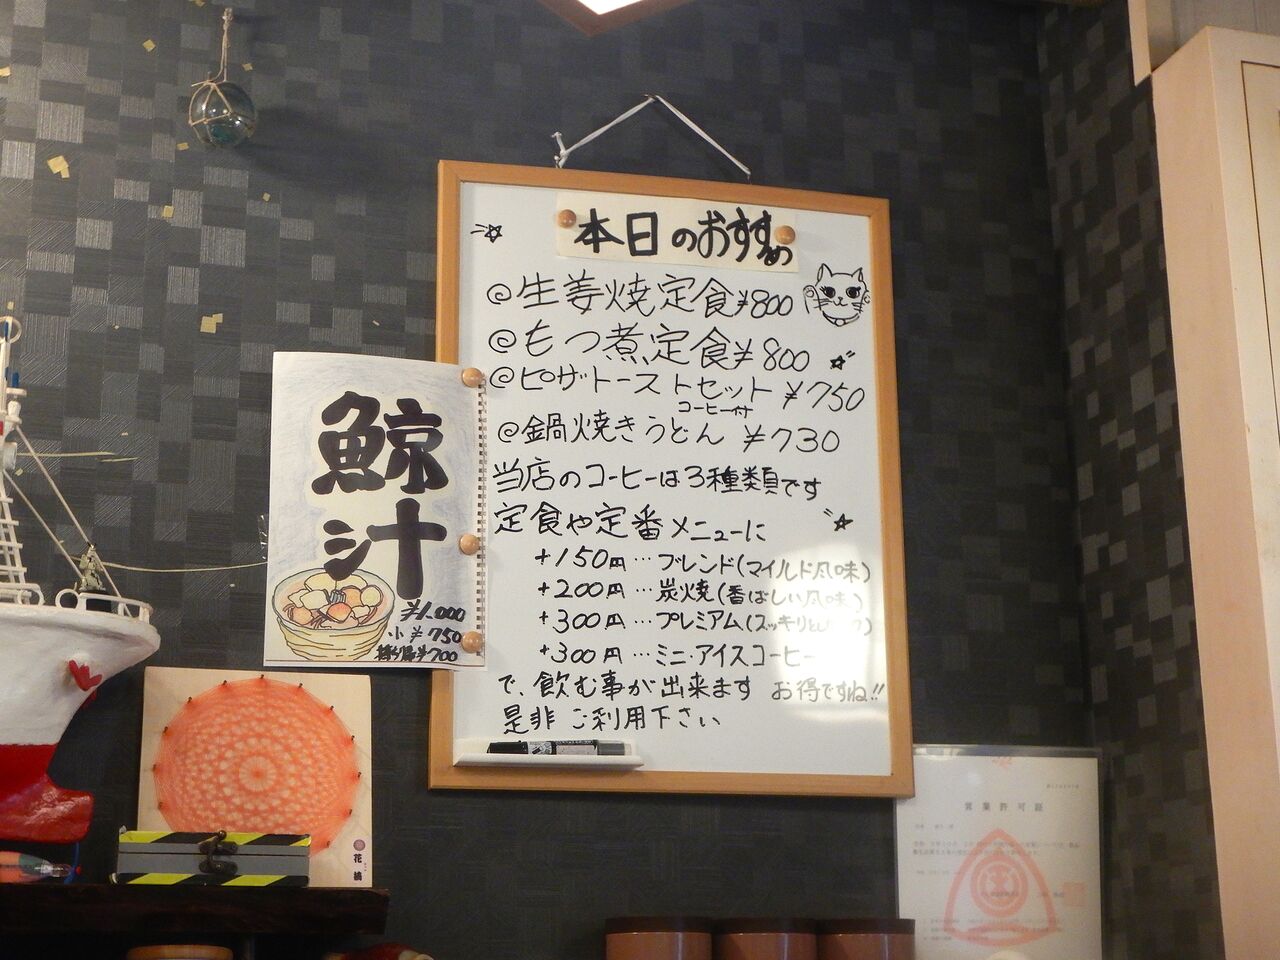 本日のおすすめ
@生姜焼定食¥800
@もつ煮定食¥800
@ピザトーストセット ¥750
コーヒー付
@鍋焼きうどん ¥730
当店のコーヒーは3種類です
定食や定番メニューに
+150円…ブレンド(マイルド風味)
+200円…炭焼(香ばしい風味)
+300円…プレミアム(スッキリ
+300円…ミニ・アイスコーヒー
で、飲む事が出来ます お得ですね!!
是非ご利用下さい
鯨汁
¥1,000
小 ¥750
持ち帰¥700
花
営業許可証